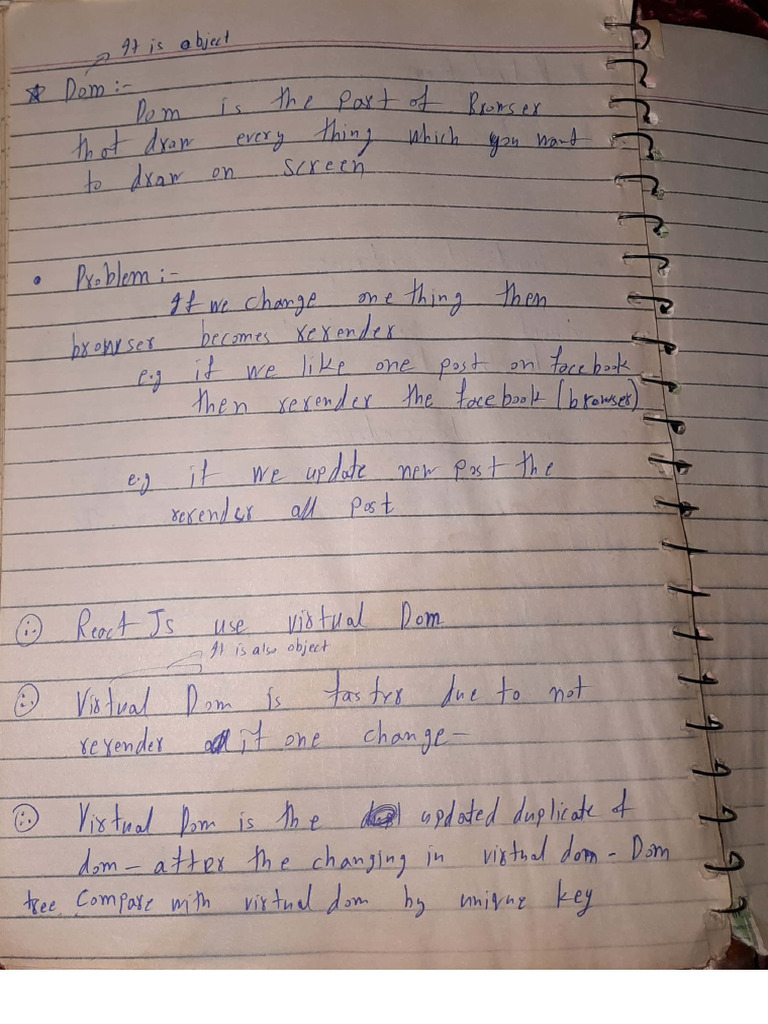 It is object
* Dom :-
Dom is the part of Browser
that draw every thing which you want
to draw on screen
• Problem :-
If we change one thing then
browser becomes rerender
e.g if we like one post on facebook
then rerender the facebook (browser)
e.g if we update new post the
rerender all post
∵ React Js use virtual Dom
It is also object
∵ Virtual Dom is faster due to not
rerender all if one change -
∵ Virtual Dom is the updated duplicate of
dom - after the changing in virtual dom - Dom
tree compare with virtual dom by unique key